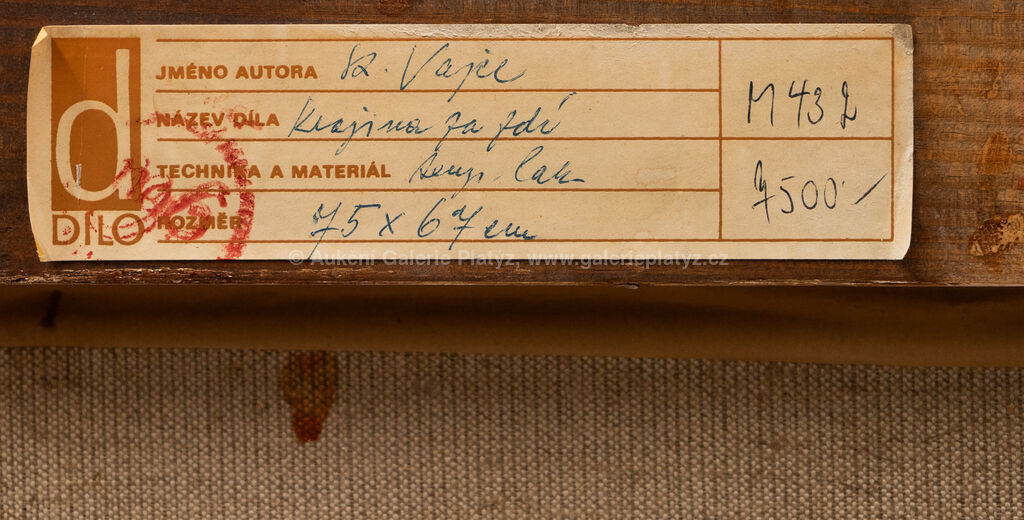 d
DÍLO
JMÉNO AUTORA K. Vajce
NÁZEV DÍLA Krajina za zdí
TECHNIKA A MATERIÁL temp. lak
ROZMĚR 75 x 67 cm
M 43
7500
© Aukční Galerie Platýz, www.galerieplatyz.cz